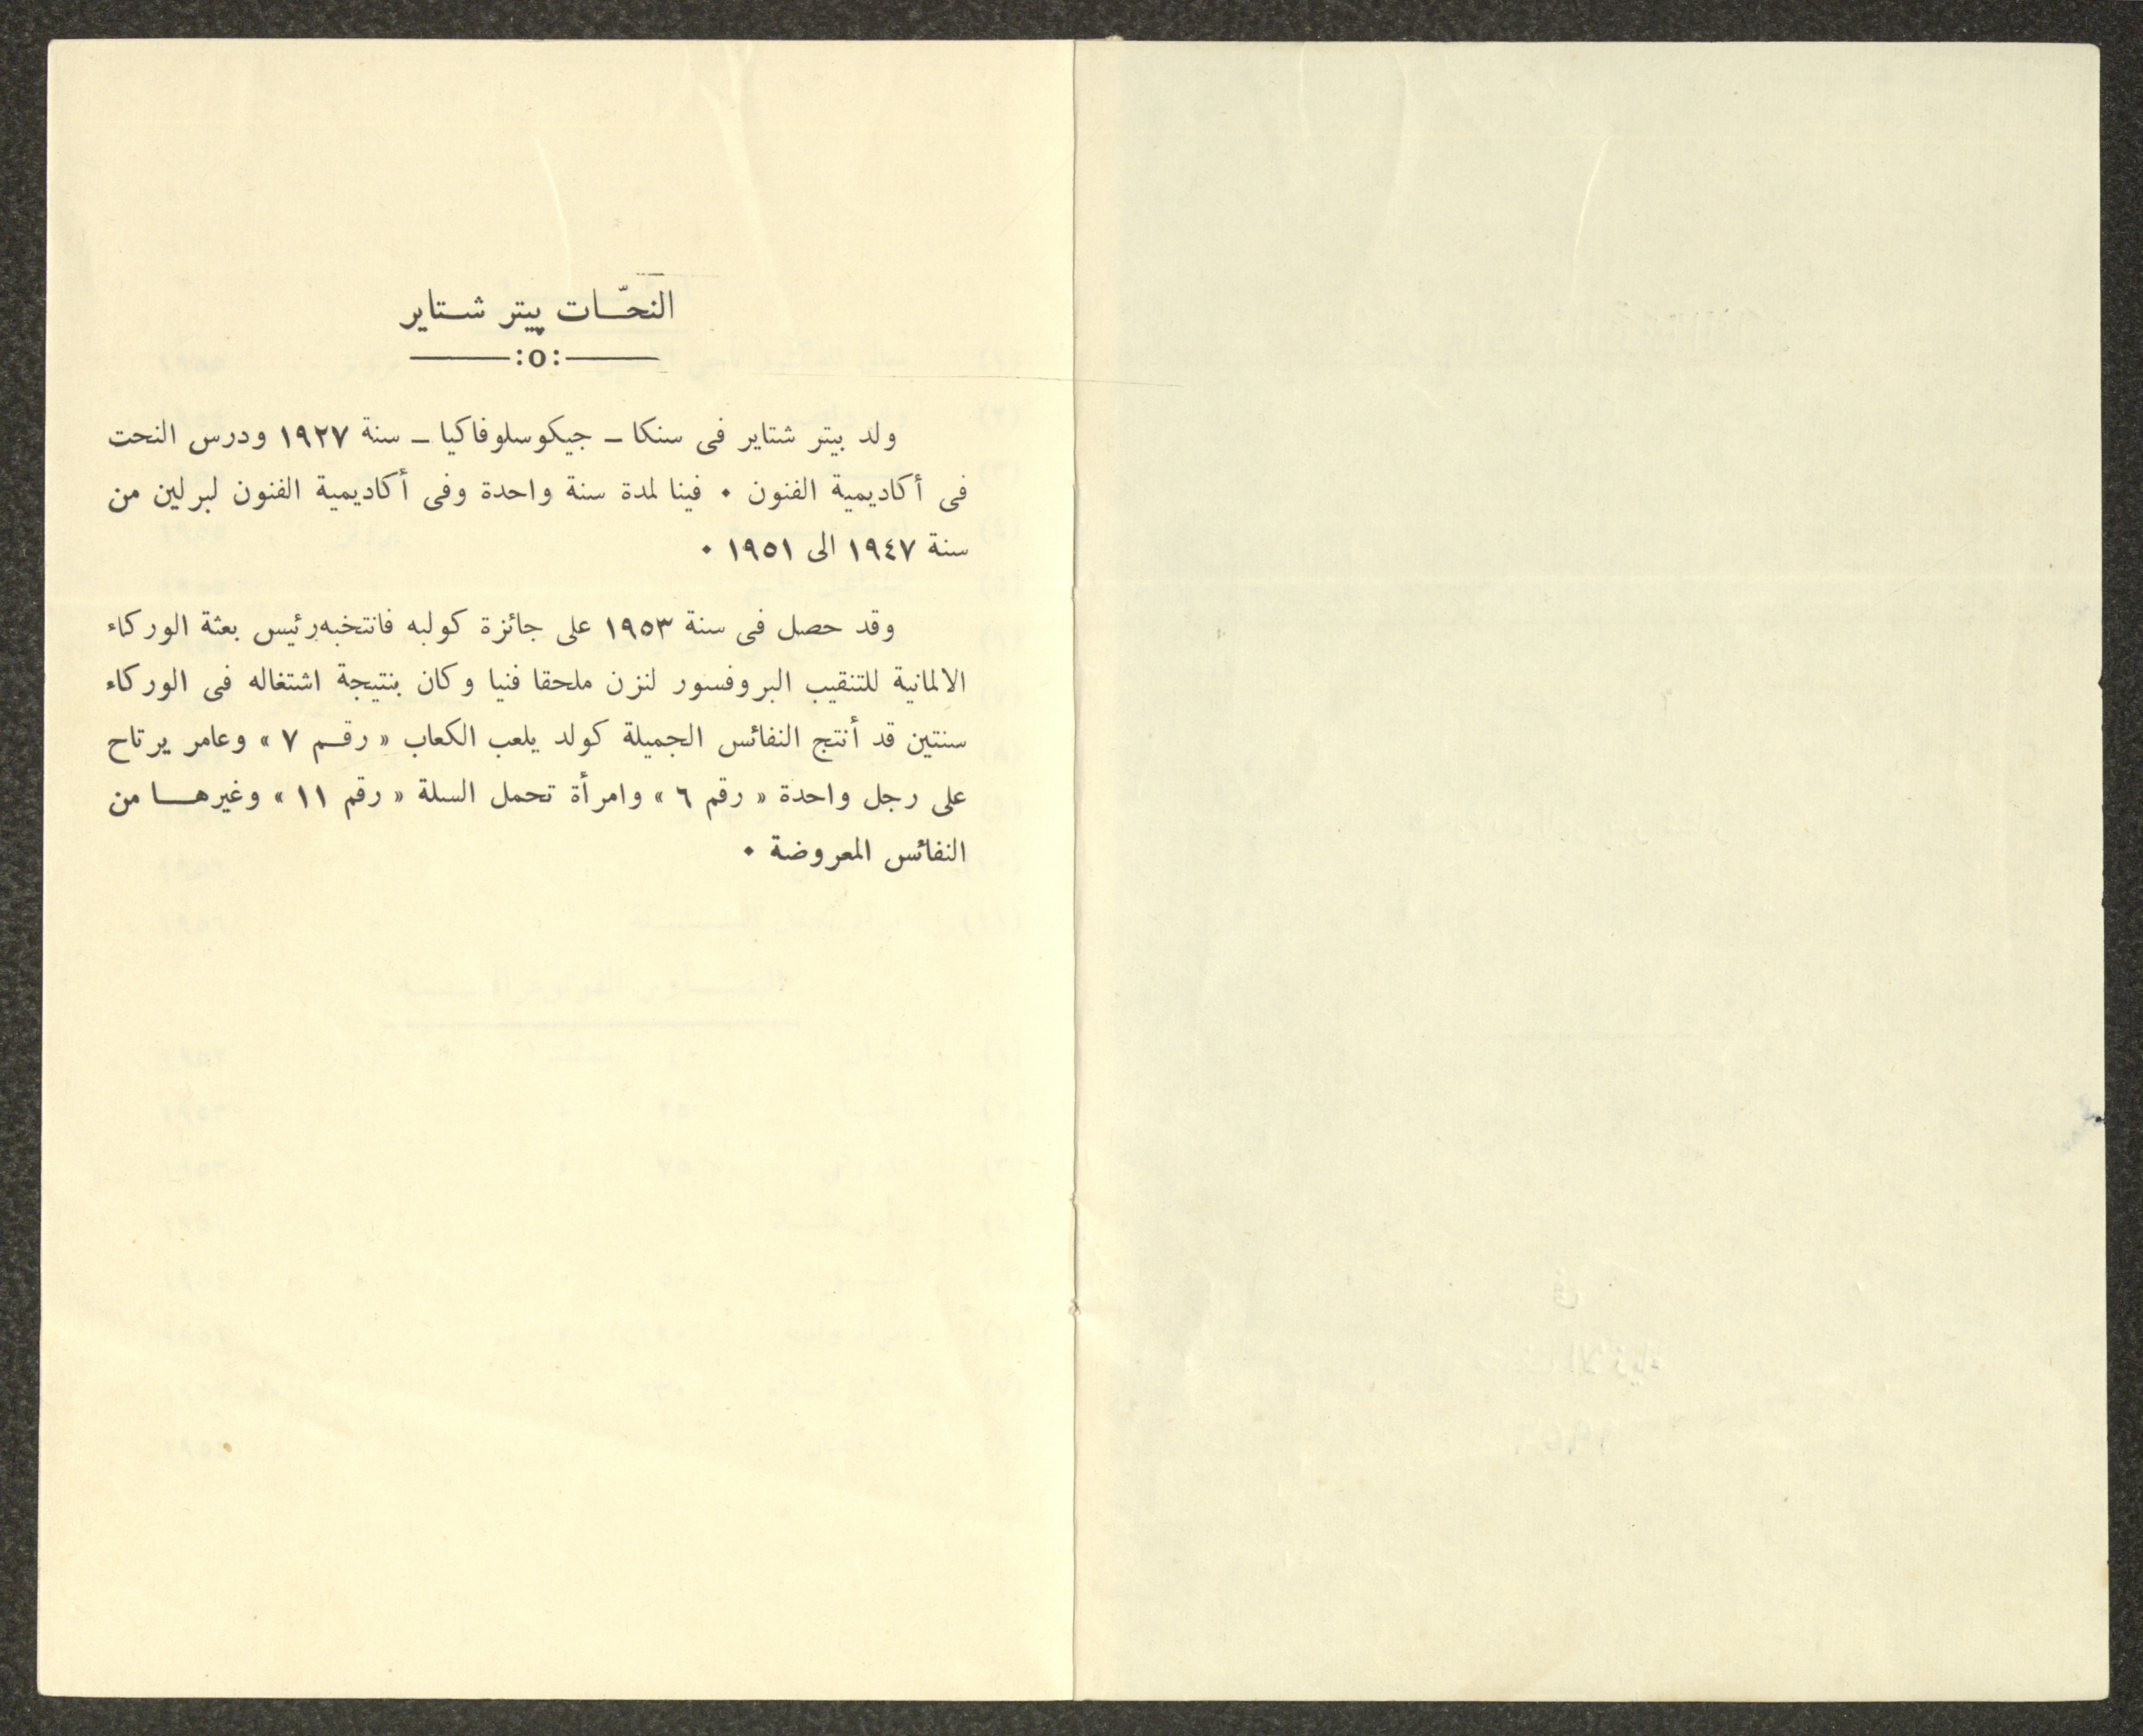 النحّـات پيتر شـتاير
ولد بيتر شتاير فى سنكا ـ جيكوسلوفاكيا ـ سنة ١٩٢٧ ودرس النحت
فى أكاديمية الفنون ٠ فينا لمدة سنة واحدة وفى أكاديمية الفنون لبرلين من
سنة ١٩٤٧ الى ١٩٥١ ٠
وقد حصل فى سنة ١٩٥٣ على جائزة كولبه فانتخبه رئيس بعثة الوركاء
الالمانية للتنقيب البروفسور لنزن ملحقا فنيا وكان بنتيجة اشتغاله فى الوركاء
سنتين قد أنتج النفائس الجميلة كولد يلعب الكعاب « رقـم ٧ » وعامر يرتاح
على رجل واحدة « رقم ٦ » وامرأة تحمل السلة « رقم ١١ » وغيرهـا من
النفائس المعروضة ٠